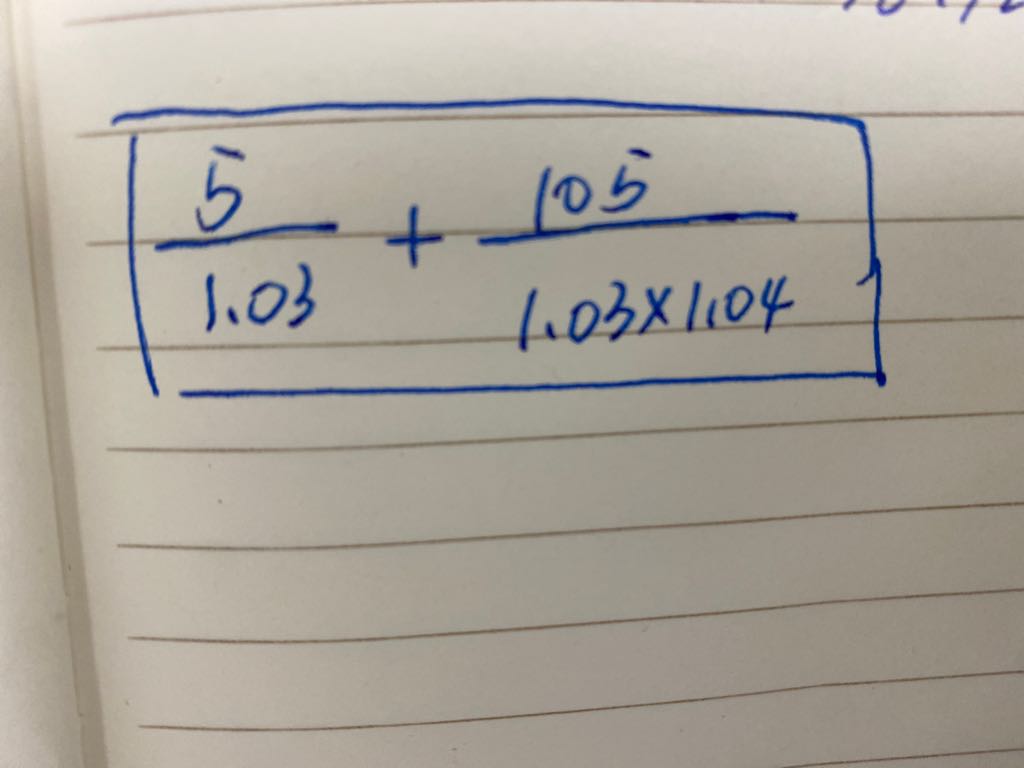 5/1.03 + 105/1.03×1.04